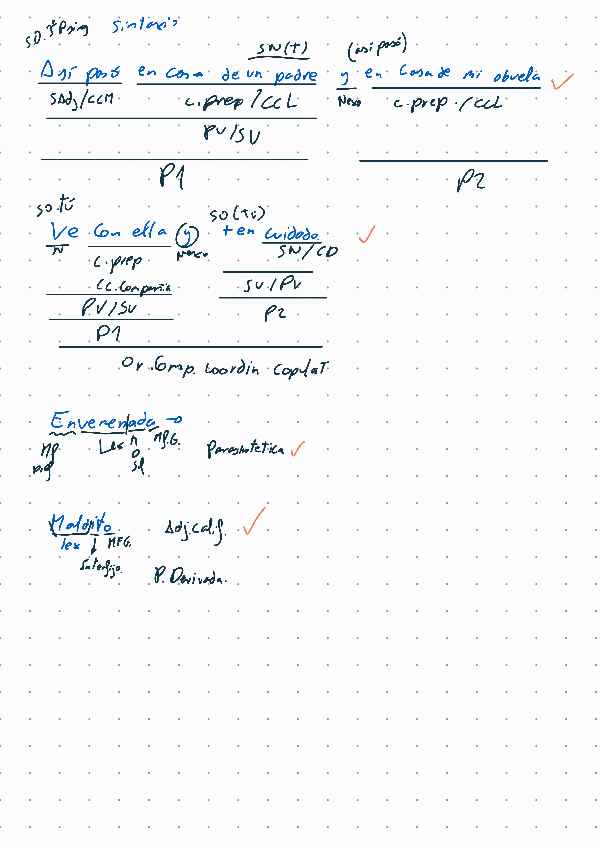 SO. 3ª P sing Sintaxis
SN(T) (así pasó)
Así pasó en casa de un padre y en casa de mi abuela
SAdj/CCM C.prep/CCL Nexo C.prep./CCL
PV/SV
P1 P2
SO.tú SO(tú)
Ve con ella y ten cuidado
N C.prep Nexo SN/CD
CC.Compañía SV/PV
PV/SV P2
P1
Or.Comp. Coordin CopulaT.
Envenenada →
Lex MF.G. Parasintética
Maldito Adj.calif.
lex MFG.
Interfijo.
P. Derivada.